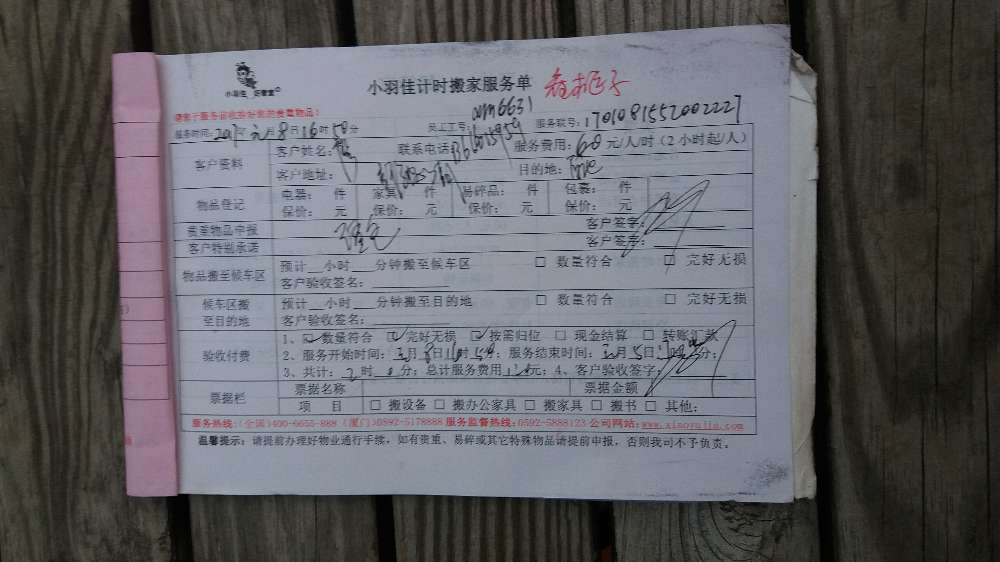 小羽佳 好管家
小羽佳计时搬家服务单
请客户服务前收拾好您的贵重物品!
服务时间: 2017年元月8日16时50分 员工工号: 服务联号: 1701081552002227
xm6631
客户资料 客户姓名: 联系电话 服务费用: 60元/人/时(2小时起/人)
客户地址: 目的地:
物品登记 电器: 件 家具 件 易碎品: 件 包裹: 件
保价: 元 保价: 元 保价: 元 保价: 元
贵重物品申报 客户签字:
客户特别承诺 客户签字:
物品搬至候车区 预计__小时__分钟搬至候车区 □ 数量符合 □ 完好无损
客户验收签名:
候车区搬至目的地 预计__小时__分钟搬至目的地 □ 数量符合 □ 完好无损
客户验收签名:
验收付费 1、☑ 数量符合 ☑ 完好无损 ☑ 按需归位 □ 现金结算 □ 转账汇款
2、服务开始时间: 元月8日16时50分; 服务结束时间: 月 日 分;
3、共计: 2时 0分; 总计服务费用 元; 4、客户验收签字:
票据栏 票据名称 票据金额
项 目 □ 搬设备 □ 搬办公家具 □ 搬家具 □ 搬书 □ 其他:
服务热线:(全国)400-6655-888 (厦门)0592-5178888 服务监督热线:0592-5888123 公司网站:www.xiaoyujia.com
温馨提示: 请提前办理好物业通行手续, 如有贵重、易碎或其它特殊物品请提前申报, 否则我司不予负责。